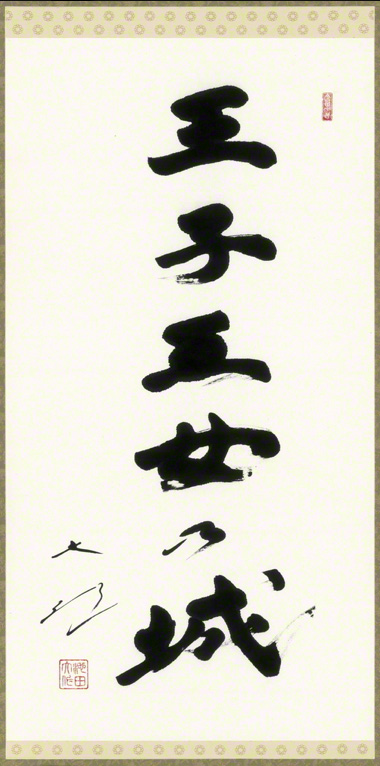 王子王女の城
大作
池田
大作